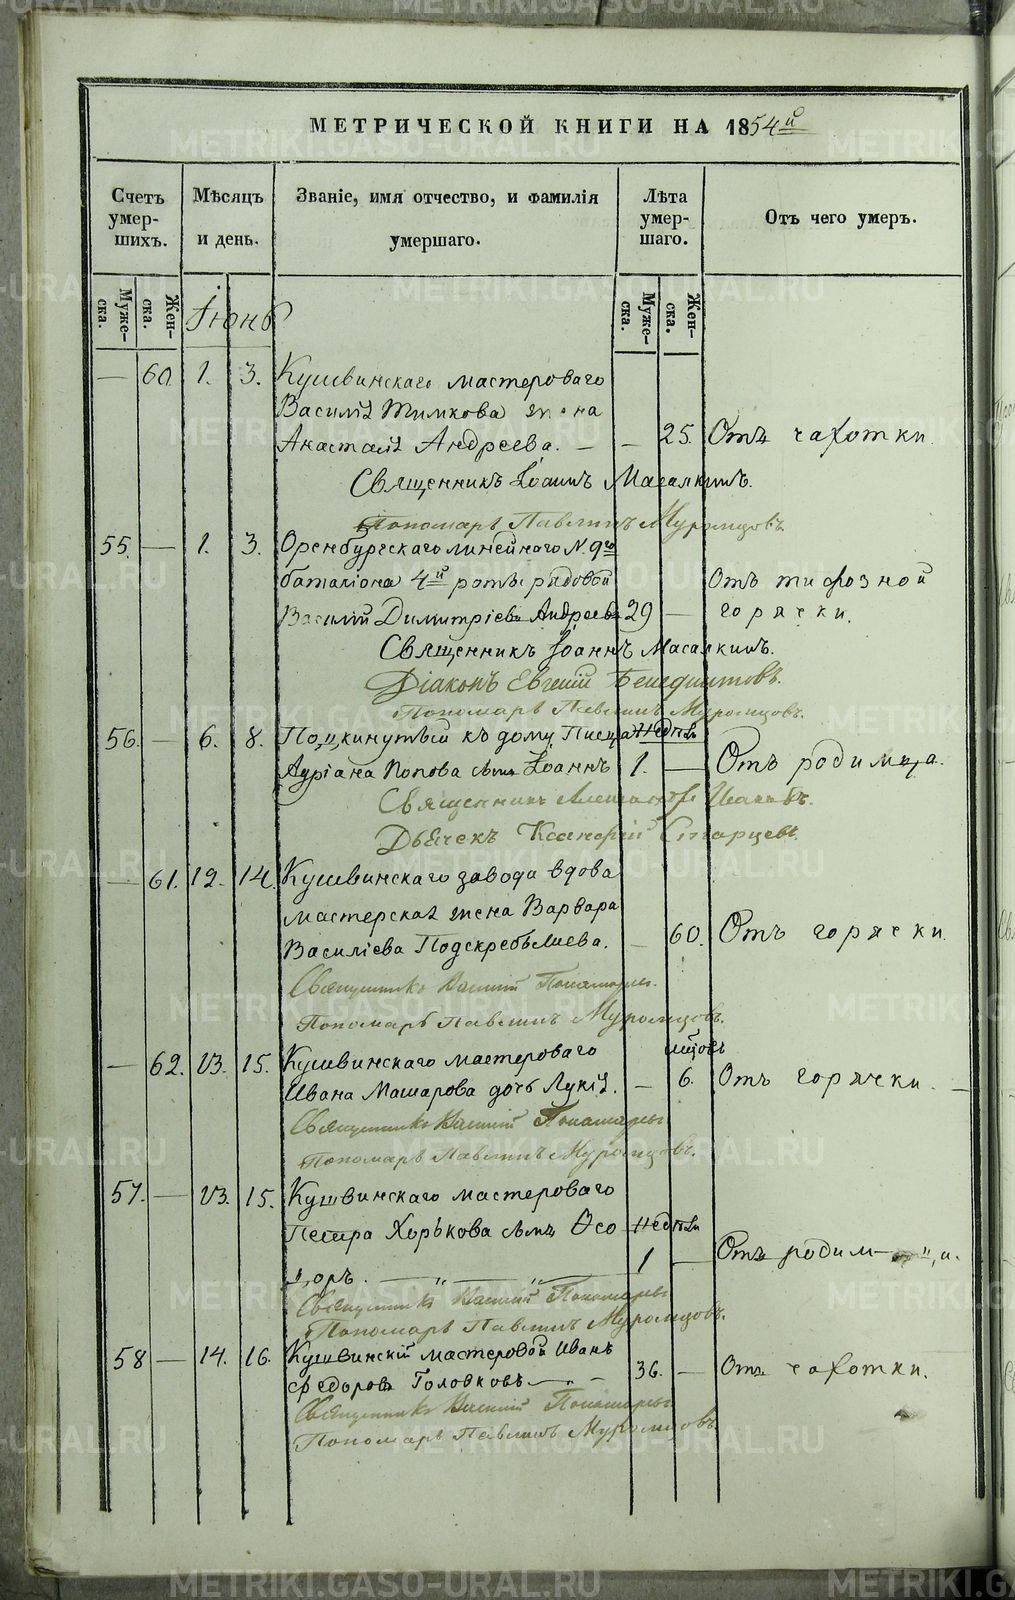 МЕТРИЧЕСКОЙ КНИГИ НА 1854й
Счетъ умер- шихъ.
Мѣсяцъ и день.
Званіе, имя отчество, и фамилія умершаго.
Лѣта умер- шаго.
Отъ чего умеръ.
Муже- ска.
Жен- ска.
Іюнь
Муже- ска.
Жен- ска.
— 60. 1. 3. Кушвинскаго мастероваго
Василія Тимкова жена
Анастасія Андреева. — — 25. Отъ чахотки.
Священникъ Іоаннъ Масалкинъ.
Пономарь Павлинъ Муромцовъ.
55. — 1. 3. Оренбургскаго линейнаго N. 9го
баталіона 4й роты рядовой Отъ тифозной
Василій Димитріевъ Андреевъ 29 — горячки.
Священникъ Іоаннъ Масалкинъ.
Діаконъ Евгеній Бенедиктовъ.
Пономарь Павлинъ Муромцовъ.
56. — 6. 8. Подкинутый къ дому Писца Недѣли
Адріана Попова сынъ Іоаннъ 1. — Отъ родимца.
Священникъ Александръ
Дьячекъ Старцевъ.
— 61. 12. 14. Кушвинскаго завода вдова
мастерская жена Варвара
Василіева Подскребышева. — 60. Отъ горячки.
Священникъ Василій Пономаревъ.
Пономарь Павлинъ Муромцовъ.
— 62. 13. 15. Кушвинскаго мастероваго мѣцовъ
Ивана Машарова дочь Лукія. — 6. Отъ горячки. —
Священникъ Василій Пономаревъ
Пономарь Павлинъ Муромцовъ.
57. — 13. 15. Кушвинскаго мастероваго
Петра Хорькова сынъ Ѳео Недѣли
доръ. — " — " — 1 — Отъ родимца.
Священникъ Василій Пономаревъ
Пономарь Павлинъ Муромцовъ.
58 — 14. 16. Кушвинскій мастеровой Иванъ
Ѳедоровъ Головковъ — . — 36. — Отъ чахотки.
Священникъ Василій Пономаревъ
Пономарь Павлинъ Муромцовъ
METRIKI.GASO-URAL.RU